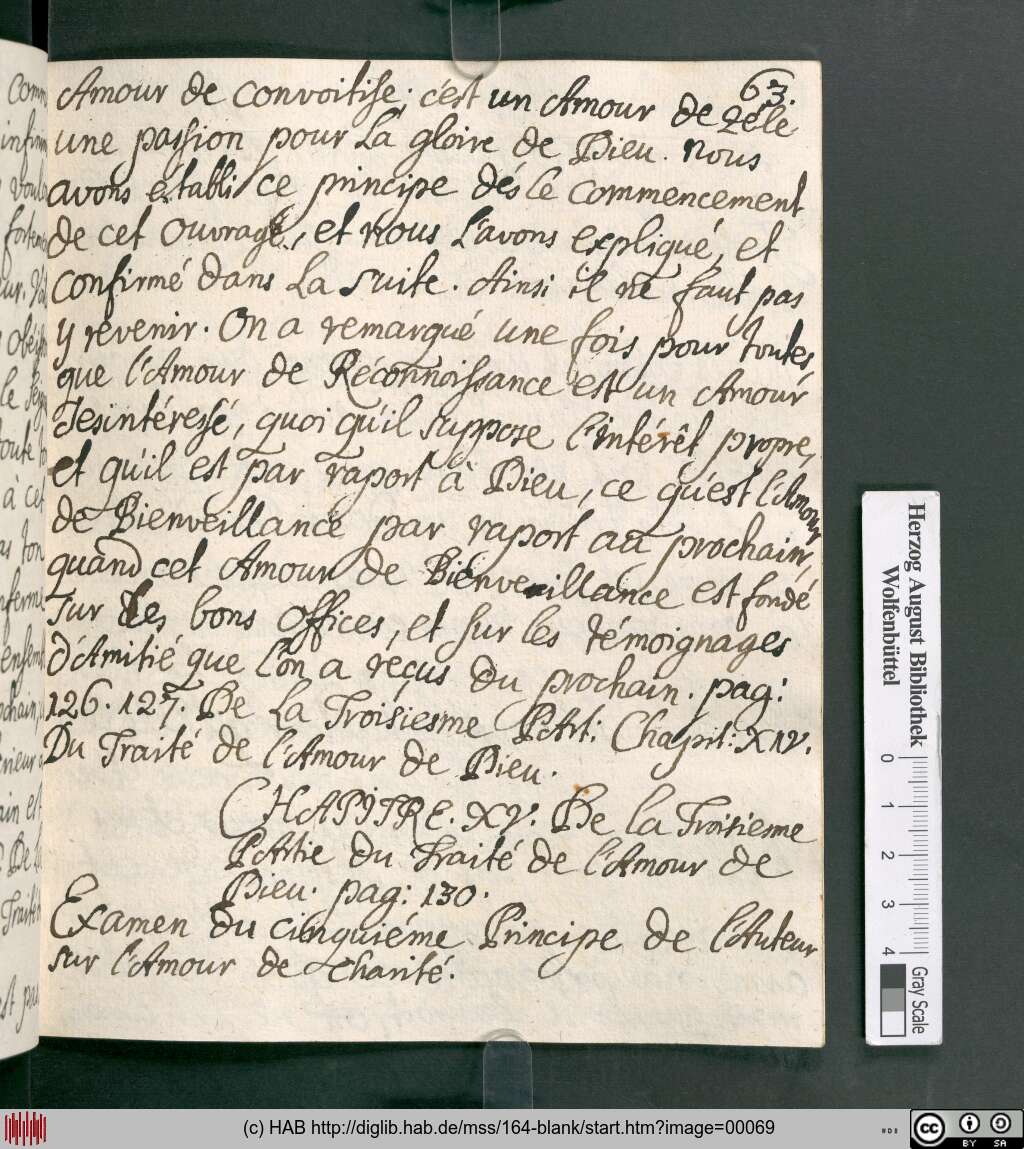 63.
Amour de convoitise; c'est un Amour de zéle
une passion pour la gloire de Dieu. nous
avons établi ce principe dés le commencement
de cet ouvrage, et nous l'avons expliqué, et
confirmé dans la suite. Ainsi il ne faut pas
y revenir. On a remarqué une fois pour toutes
que l'Amour de Réconnoissance est un Amour
desintéressé, quoi qu'il suppose l'intérêt propre,
et qu'il est par raport à Dieu, ce qu'est l'Amour
de Bienveillance par raport au prochain,
quand cet Amour de Bienveillance est fondé
sur les bons offices, et sur les témoignages
d'Amitié que l'on a reçus du prochain. pag:
126. 127. De la Troisiesme PArt: Chapit: XIV.
Du Traité de l'Amour de Dieu.
CHAPITRE. XV. De la Troisiesme
PArtie du Traité de l'Amour de
Dieu. pag: 130.
Examen du cinquiéme Principe de l'Auteur
sur l'Amour de Charité.
Herzog August Bibliothek
Wolfenbüttel
0 1 2 3 4
Gray Scale
(c) HAB http://diglib.hab.de/mss/164-blank/start.htm?image=00069
cc BY SA